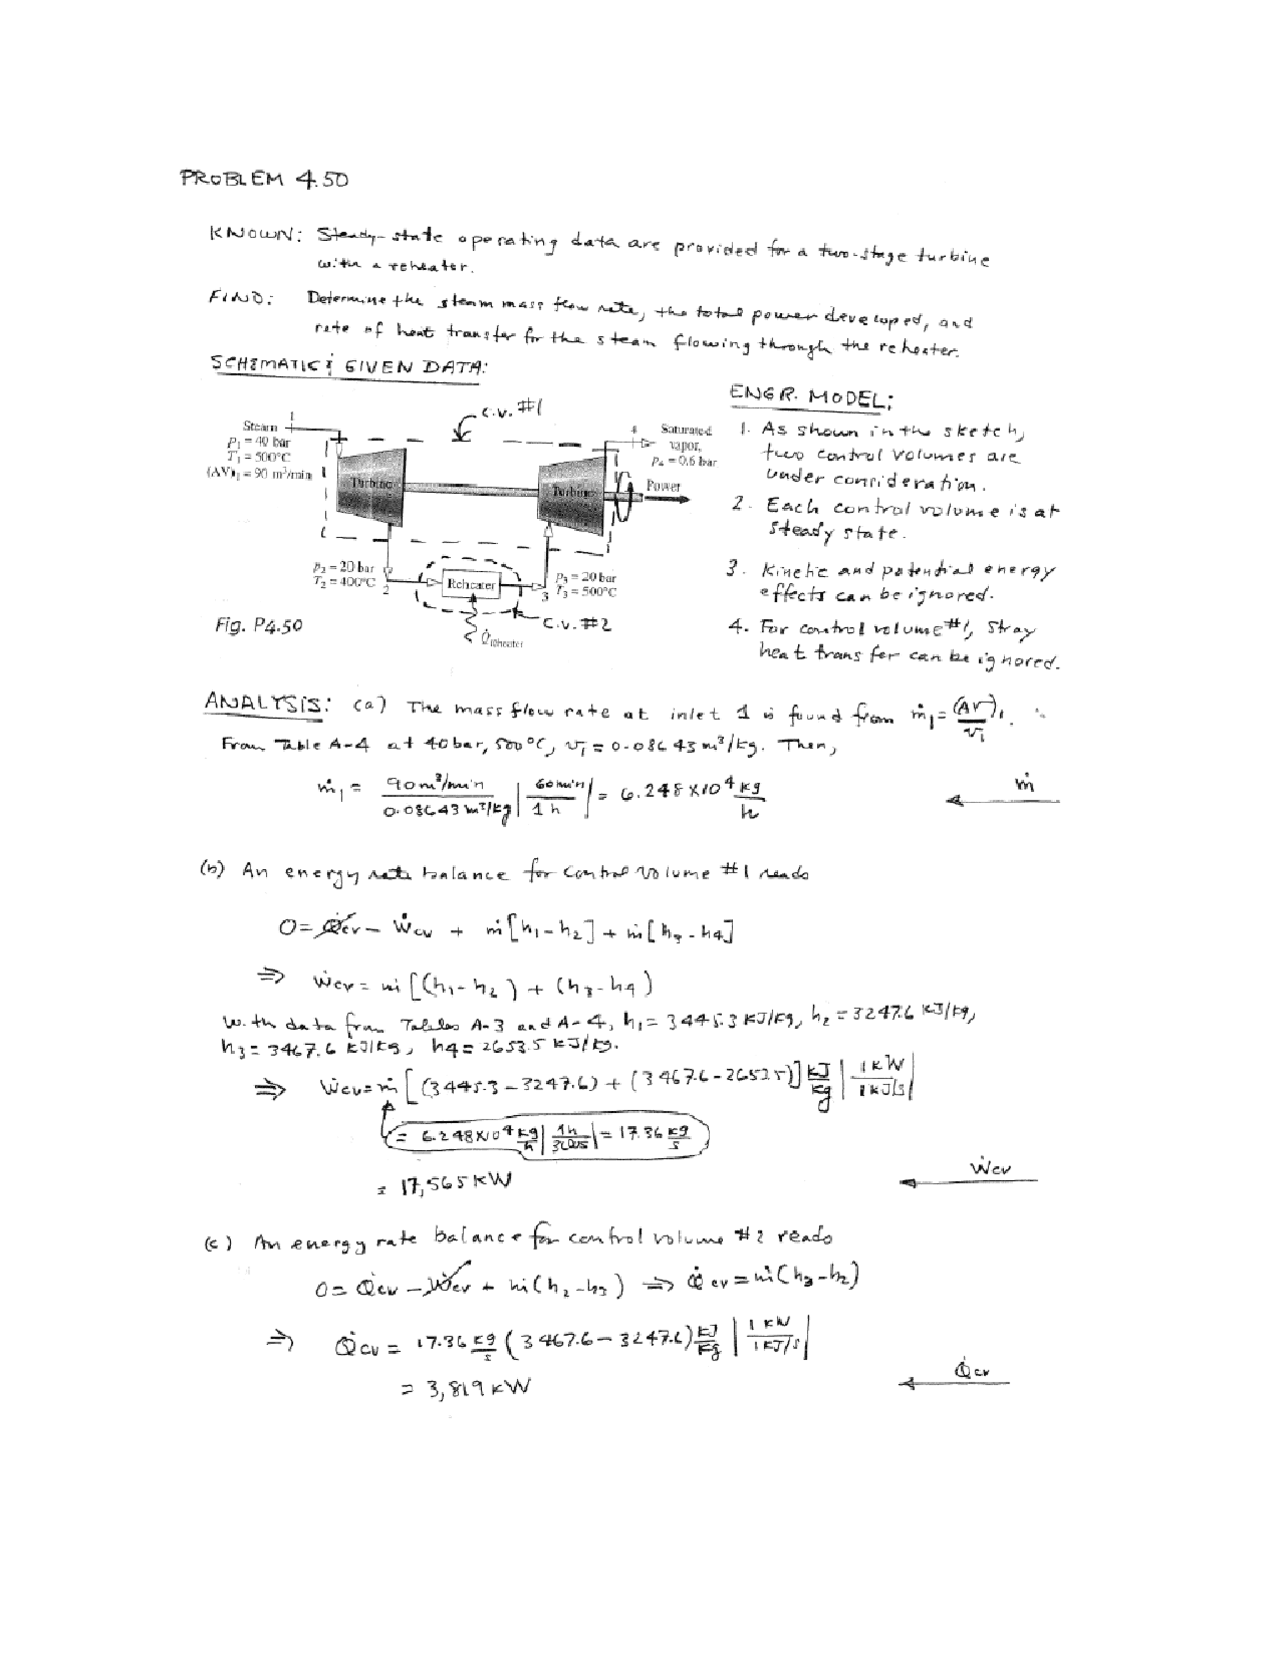 PROBLEM 4.50
KNOWN: Steady-state operating data are provided for a two-stage turbine
with a reheater.
FIND: Determine the steam mass flow rate, the total power developed, and
rate of heat transfer for the steam flowing through the reheater.
SCHEMATIC & GIVEN DATA:
ENGR. MODEL:
1
Steam
p₁ = 40 bar
T₁ = 500°C
(AV)₁ = 90 m³/min
Turbine
C.V. #1
Turbine
4
Saturated
vapor,
p₄ = 0.6 bar
Power
p₂ = 20 bar
T₂ = 400°C
2
Reheater
3
p₃ = 20 bar
T₃ = 500°C
C.V. #2
Q̇reheater
Fig. P4.50
1. As shown in the sketch,
two control volumes are
under consideration.
2. Each control volume is at
steady state.
3. Kinetic and potential energy
effects can be ignored.
4. For control volume #1, stray
heat transfer can be ignored.
ANALYSIS: (a) The mass flow rate at inlet 1 is found from ṁ₁ = (AV)₁/v₁.
From Table A-4 at 40 bar, 500°C, v₁ = 0.08643 m³/kg. Then,
ṁ₁ = 90 m³/min / 0.08643 m³/kg | 60 min / 1 h | = 6.248 × 10⁴ kg/h
ṁ
(b) An energy rate balance for control volume #1 reads
0 = Q̇cv - Ẇcv + ṁ[h₁ - h₂] + ṁ[h₃ - h₄]
⇒ Ẇcv = ṁ[(h₁ - h₂) + (h₃ - h₄)
With data from Tables A-3 and A-4, h₁ = 3445.3 kJ/kg, h₂ = 3247.6 kJ/kg,
h₃ = 3467.6 kJ/kg, h₄ = 2653.5 kJ/kg.
⇒ Ẇcv = ṁ[(3445.3 - 3247.6) + (3467.6 - 2653.5)] kJ/kg | 1 kW / 1 kJ/s |
= 6.248 × 10⁴ kg/h | 1h / 3600s | = 17.36 kg/s
= 17,565 kW
Ẇcv
(c) An energy rate balance for control volume #2 reads
0 = Q̇cv - Ẇcv + ṁ(h₂ - h₃) ⇒ Q̇cv = ṁ(h₃ - h₂)
⇒ Q̇cv = 17.36 kg/s (3467.6 - 3247.6) kJ/kg | 1 kW / 1 kJ/s |
= 3,819 kW
Q̇cv